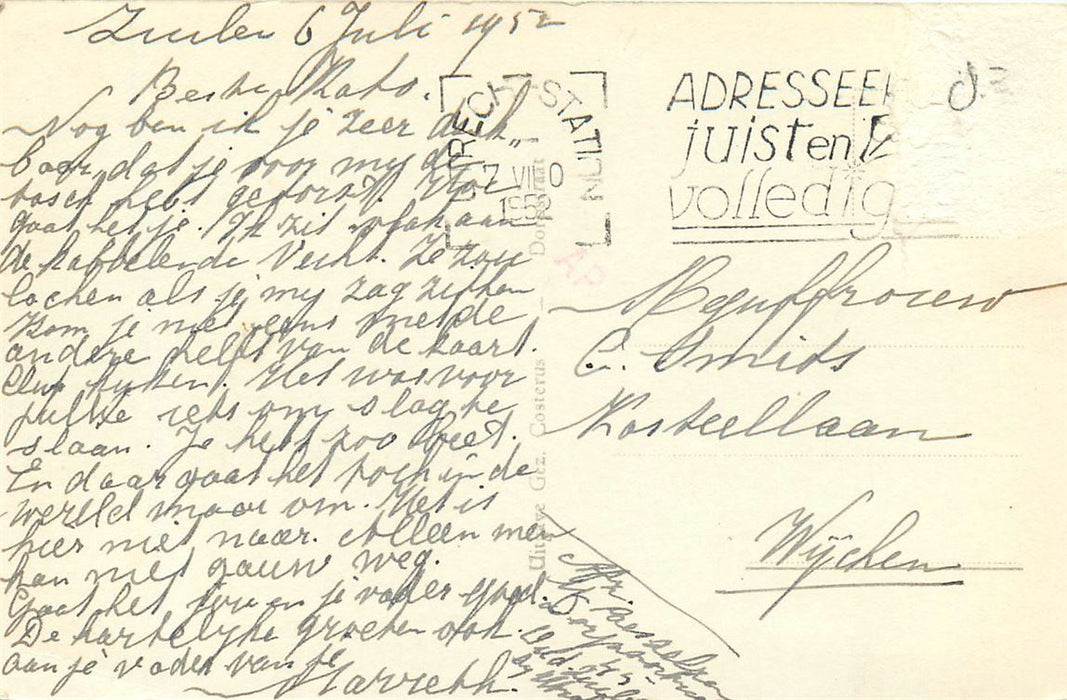 Zuilen 6 Juli 1952
Beste Kato.
Nog ben ik je zeer dank„
baar, dat je voor mij de
bosch hebt getorst. Hoe
gaat het je. Ik zit vlak aan
de kabbelende Vecht. Je zou
lachen als je mij zag zitten
Kom je niet eens met de
andere helft van de kaart.
kijken. Het was voor
jullie iets om slag te
slaan. Je hebt zoo beet.
En daar gaat het toch in de
wereld maar om. Het is
hier niet naar. Alleen men
kan niet gauw weg.
Gaat het jou en je vader goed.
De hartelijke groeten ook
aan je vader van je
STATI
7 VII 0
1952
ADRESSEER
juist en
volledig
Mejuffrouw
C. Smits
Kasteellaan
Wijchen
Uitgave Gez. Costerus – Dorpstraat 1